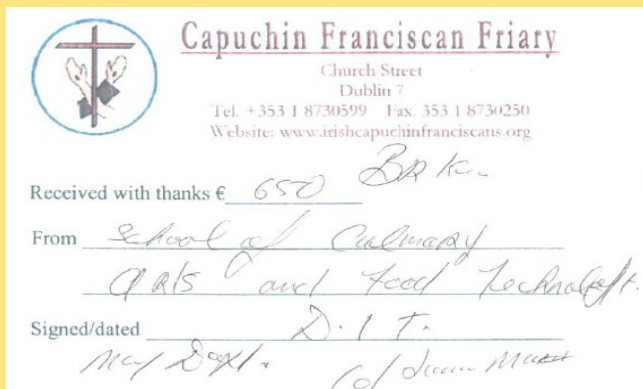 Capuchin Franciscan Friary
Church Street
Dublin 7
Tel. +353 1 8730599 Fax 353 1 8730250
Website: www.irishcapuchinfranciscans.org
Received with thanks € 650
From School of Culinary
Arts and Food Technology.
Signed/dated D.I.T.